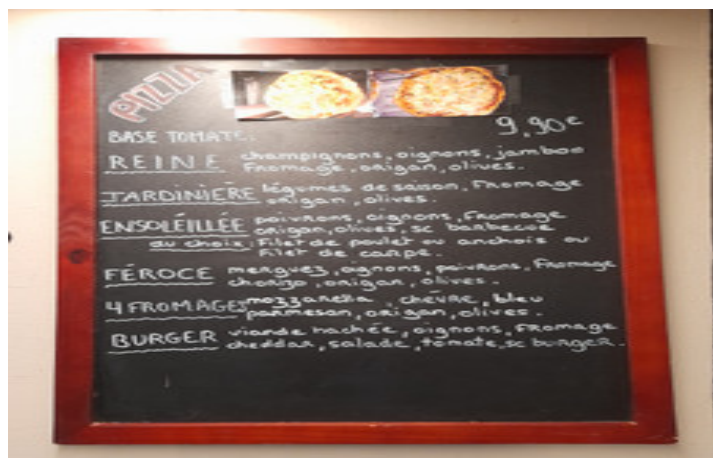 PIZZA
BASE TOMATE: 9,90€
REINE champignons, oignons, jambon
fromage, origan, olives.
JARDINIERE légumes de saison, fromage
origan, olives.
ENSOLÉILLÉE poivrons, oignons, fromage
origan, olives, sc barbecue
au choix: filet de poulet ou anchois ou
filet de carpe.
FÉROCE merguez, ognons, poivrons, fromage
chorizo, origan, olives.
4 FROMAGES mozzarella, chèvre, bleu
parmesan, origan, olives.
BURGER viande hachée, oignons, fromage
cheddar, salade, tomate, sc burger.